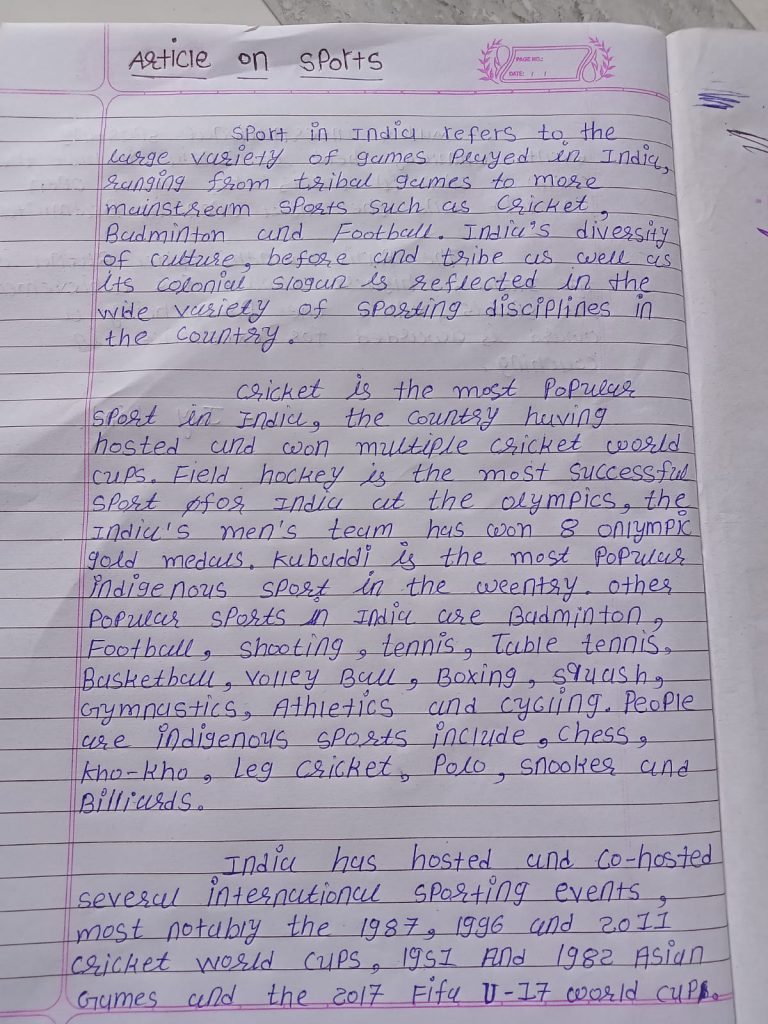 Article on Sports
PAGE NO.:
DATE: / /
Sport in India refers to the
large variety of games Played in India,
ranging from tribal games to more
mainstream sports such as Cricket,
Badminton and Football. India's diversity
of culture, before and tribe as well as
its colonial slogan is reflected in the
wide variety of sporting disciplines in
the country.
Cricket is the most Popular
sport in India, the country having
hosted and won multiple cricket world
cups. Field hockey is the most successful
sport for India at the olympics, the
India's men's team has won 8 onlympic
gold medals. Kabaddi is the most Popular
indigenous sport in the weentry. other
Popular sports in India are Badminton,
Football, shooting, tennis, Table tennis,
Basketball, Volley Ball, Boxing, squash,
Gymnastics, Athletics and cycling. People
are indigenous sports include, chess,
kho-kho, leg cricket, Polo, snooker and
Billiards.
India has hosted and co-hosted
several international sporting events,
most notably the 1987, 1996 and 2011
cricket world cups, 1951 And 1982 Asian
Games and the 2017 Fifa U-17 world cup.